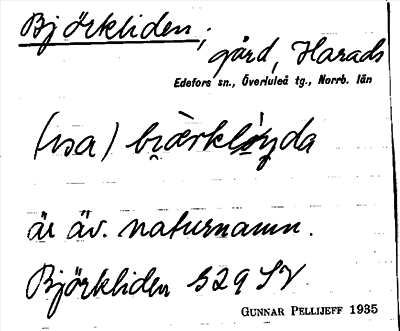 Björkliden,
gård, Harads
Edefors sn., Överluleå tg., Norrb. län
(isa)
är äv. naturnamn.
Björkliden S29 SV
GUNNAR PELLIJEFF 1935